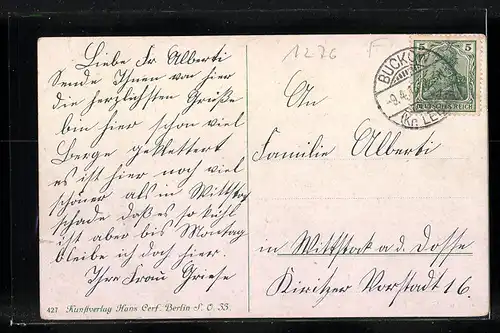 Liebe Fr Alberti
Sende Ihnen von hier
die herzlichsten Grüße
bin hier schon viel
Berge geklettert
es ist hier noch viel
schöner als in Wittstock
schade daß es so kühl
ist aber bis Montag
bleibe ich doch hier.
Ihre Frau Griese
427 Kunstverlag Hans Cerf. Berlin S. O. 33.
1276 F
BUCKOW
-9.4.
(Kr. LEB
5 5
DEUTSCHES REICH
An
Familie Alberti
in Wittstock a. d. Dosse
Kiritzer Vorstadt 16.